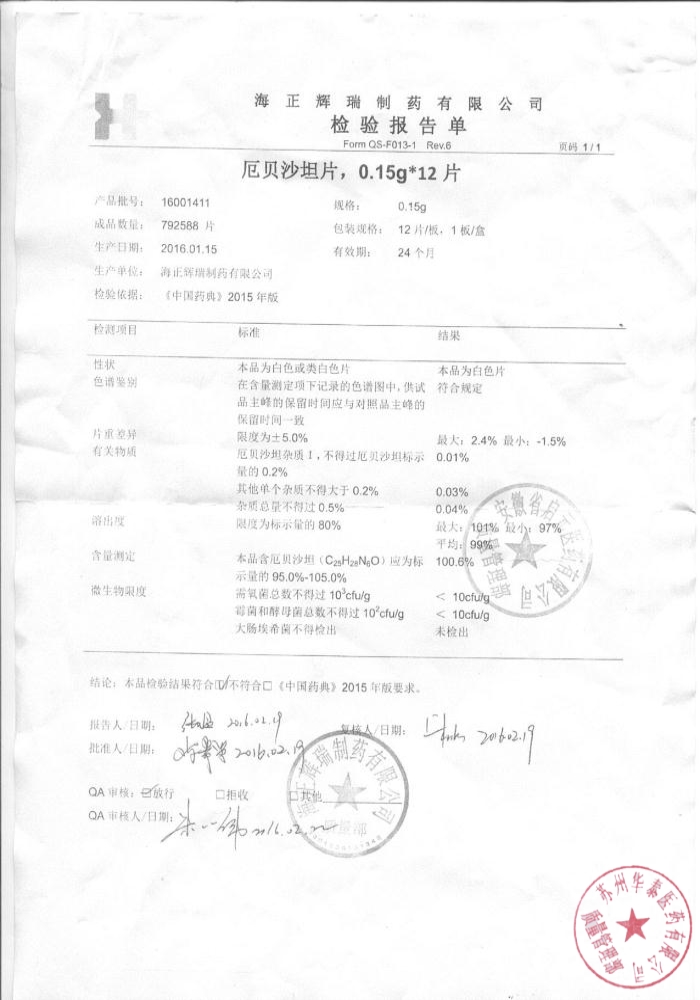 海正辉瑞制药有限公司
检验报告单
Form QS-F013-1 Rev.6
页码 1/1
厄贝沙坦片，0.15g*12 片
产品批号： 16001411 规格： 0.15g
成品数量： 792588 片 包装规格： 12 片/板，1 板/盒
生产日期： 2016.01.15 有效期： 24 个月
生产单位： 海正辉瑞制药有限公司
检验依据： 《中国药典》2015 年版
检测项目 标准 结果
性状 本品为白色或类白色片 本品为白色片
色谱鉴别 在含量测定项下记录的色谱图中，供试 符合规定
品主峰的保留时间应与对照品主峰的
保留时间一致
片重差异 限度为±5.0% 最大：2.4% 最小：-1.5%
有关物质 厄贝沙坦杂质 I，不得过厄贝沙坦标示 0.01%
量的 0.2%
其他单个杂质不得大于 0.2% 0.03%
杂质总量不得过 0.5% 0.04%
溶出度 限度为标示量的 80% 最大：101% 最小：97%
平均：99%
含量测定 本品含厄贝沙坦（C25H28N6O）应为标 100.6%
示量的 95.0%-105.0%
微生物限度 需氧菌总数不得过 10³cfu/g ＜ 10cfu/g
霉菌和酵母菌总数不得过 10²cfu/g ＜ 10cfu/g
大肠埃希菌不得检出 未检出
结论：本品检验结果符合☑不符合□《中国药典》2015 年版要求。
报告人/日期： 2016.02.19 复核人/日期： 2016.02.19
批准人/日期： 2016.02.19
QA 审核：☑放行 □拒收 □其他
QA 审核人/日期： 2016.02.22
海正辉瑞制药有限公司
质量部
苏州华泰医药有限公司
质量管理部